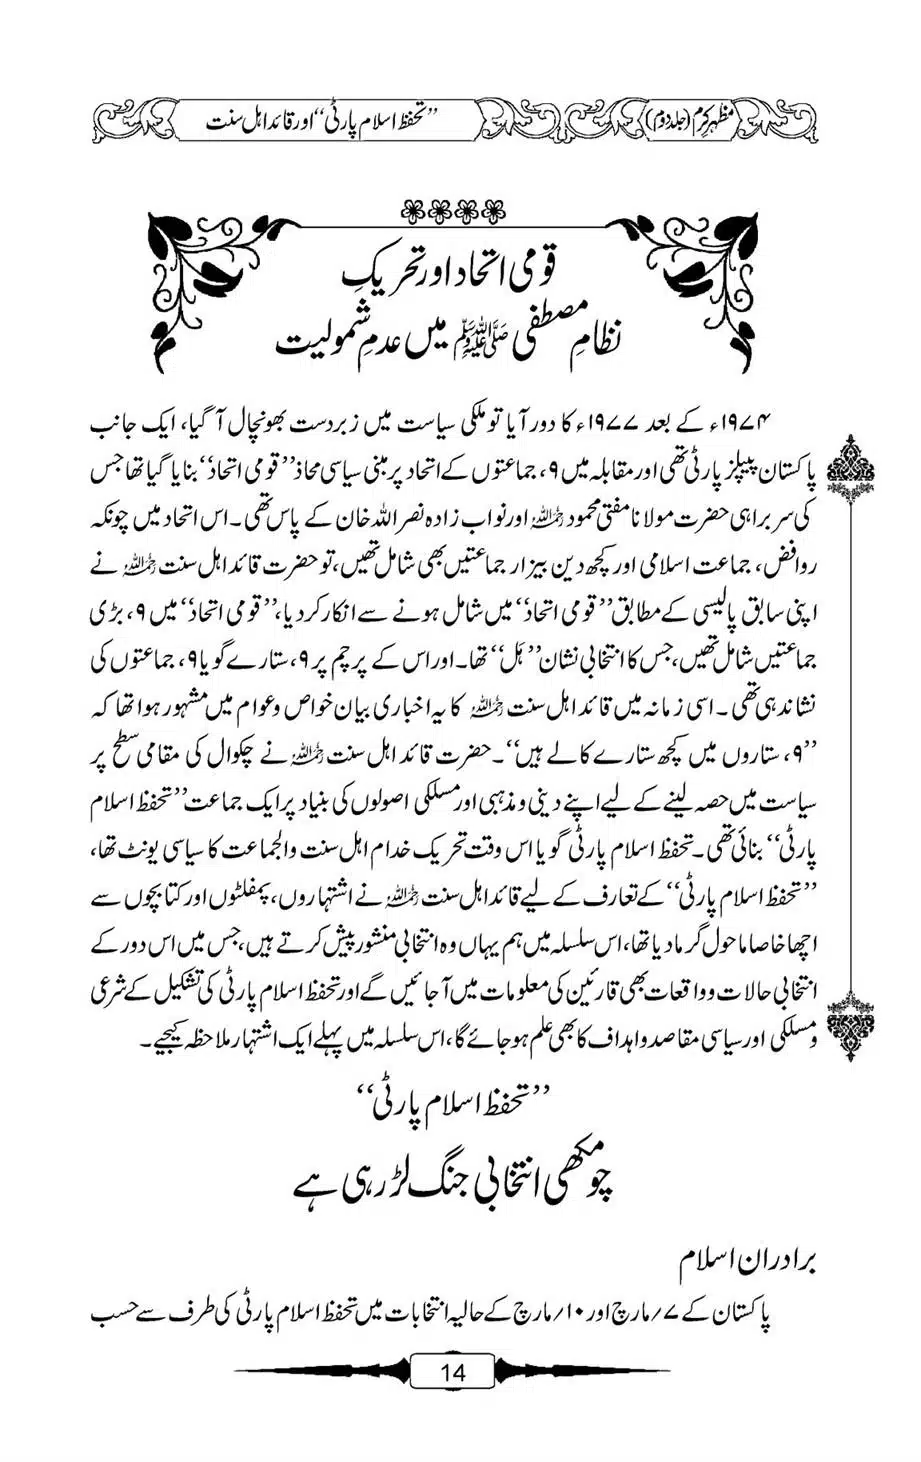 مظہر کرم (جلد دوم)
”تحفظ اسلام پارٹی“ اور قائد اہل سنت
قومی اتحاد اور تحریکِ
نظامِ مصطفی ﷺ میں عدمِ شمولیت
۱۹۷۴ء کے بعد ۱۹۷۷ء کا دور آیا تو ملکی سیاست میں زبردست بھونچال آ گیا، ایک جانب
پاکستان پیپلز پارٹی تھی اور مقابلہ میں ۹، جماعتوں کے اتحاد پر مبنی سیاسی محاذ ”قومی اتحاد“ بنایا گیا تھا جس
کی سربراہی حضرت مولانا مفتی محمود رحمۃ اللہ علیہ اور نواب زادہ نصر اللہ خان کے پاس تھی۔ اس اتحاد میں چونکہ
روافض، جماعت اسلامی اور کچھ دین بیزار جماعتیں بھی شامل تھیں، تو حضرت قائد اہل سنت رحمۃ اللہ علیہ نے
اپنی سابق پالیسی کے مطابق ”قومی اتحاد“ میں شامل ہونے سے انکار کر دیا، ”قومی اتحاد“ میں ۹، بڑی
جماعتیں شامل تھیں، جس کا انتخابی نشان ”ہَل“ تھا۔ اور اس کے پرچم پر ۹، ستارے گویا ۹، جماعتوں کی
نشاندہی تھی۔ اسی زمانہ میں قائد اہل سنت رحمۃ اللہ علیہ کا یہ اخباری بیان خواص و عوام میں مشہور ہوا تھا کہ
”۹، ستاروں میں کچھ ستارے کالے ہیں“۔ حضرت قائد اہل سنت رحمۃ اللہ علیہ نے چکوال کی مقامی سطح پر
سیاست میں حصہ لینے کے لیے اپنے دینی و مذہبی اور مسلکی اصولوں کی بنیاد پر ایک جماعت ”تحفظ اسلام
پارٹی“ بنائی تھی۔ تحفظ اسلام پارٹی گویا اس وقت تحریک خدام اہل سنت والجماعت کا سیاسی یونٹ تھا،
”تحفظ اسلام پارٹی“ کے تعارف کے لیے قائد اہل سنت رحمۃ اللہ علیہ نے اشتہاروں، پمفلٹوں اور کتابچوں سے
اچھا خاصا ماحول گرما دیا تھا، اس سلسلہ میں ہم یہاں وہ انتخابی منشور پیش کرتے ہیں، جس میں اس دور کے
انتخابی حالات و واقعات بھی قارئین کی معلومات میں آ جائیں گے اور تحفظ اسلام پارٹی کی تشکیل کے شرعی
و مسلکی اور سیاسی مقاصد و اہداف کا بھی علم ہو جائے گا، اس سلسلہ میں پہلے ایک اشتہار ملاحظہ کیجیے۔
”تحفظ اسلام پارٹی“
چومکھی انتخابی جنگ لڑ رہی ہے
برادران اسلام
پاکستان کے ۷/مارچ اور ۱۰/مارچ کے حالیہ انتخابات میں تحفظ اسلام پارٹی کی طرف سے حسب
14